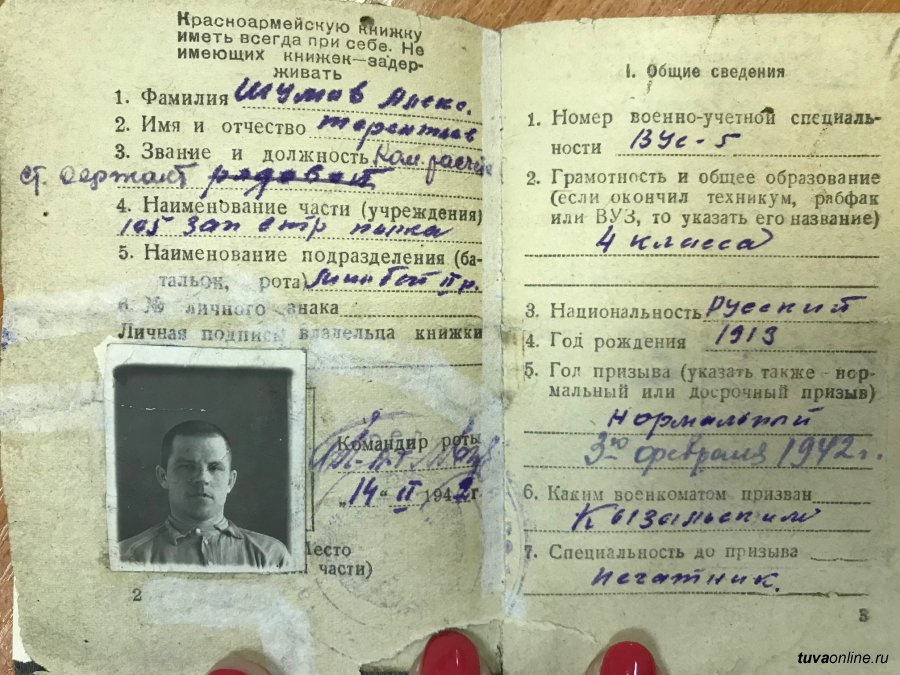 Красноармейскую книжку
иметь всегда при себе. Не
имеющих книжек—задер-
живать
1. Фамилия Шумов Алекс.
2. Имя и отчество Терентьев
3. Звание и должность Ком. расчета
ст. сержант рядовой
4. Наименование части (учреждения)
105 зап стр полка
5. Наименование подразделения (ба-
тальон, рота) Мин бат II р.
6. № личного знака
Личная подпись владельца книжки
Командир роты
„14" II 1942 г.
Место
части)
2
I. Общие сведения
1. Номер военно-учетной специаль-
ности ВУС-5
2. Грамотность и общее образование
(если окончил техникум, рабфак
или ВУЗ, то указать его название)
4 класса
3. Национальность Русский
4. Год рождения 1913
5. Год призыва (указать также нор-
мальный или досрочный призыв)
Нормальный
3го февраля 1942 г.
6. Каким военкоматом призван
Кызыльским
7. Специальность до призыва
печатник.
3
tuvaonline.ru